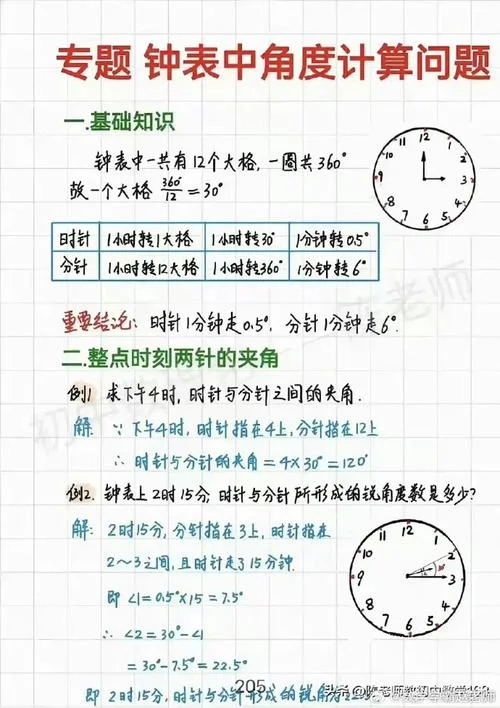 专题 钟表中角度计算问题
一.基础知识
钟表中一共有12个大格,一圈共360°
故一个大格 360°/12 = 30°
12
1
2
3
4
5
6
7
8
9
10
11
时针 1小时转1大格 1小时转30° 1分钟转0.5°
分针 1小时转12大格 1小时转360° 1分钟转6°
重要结论: 时针1分钟走0.5°, 分针1分钟走6°.
二.整点时刻两针的夹角
例1 求下午4时,时针与分针之间的夹角.
解: ∵ 下午4时,时针指在4上,分针指在12上
∴ 时针与分针的夹角=4×30°=120°
例2. 钟表上2时15分,时针与分针所形成的锐角度数是多少?
解: 2时15分,分针指在3上,时针指在
2~3之间,且时针走了15分钟.
即 ∠1=0.5°×15=7.5°
∴ ∠2=30°-∠1
=30°-7.5°=22.5°
12
1
2
3
4
5
6
7
8
9
10
11
即 2时15分,时针与分针形成的锐角为2
205
头条 @陈老师教初中数学